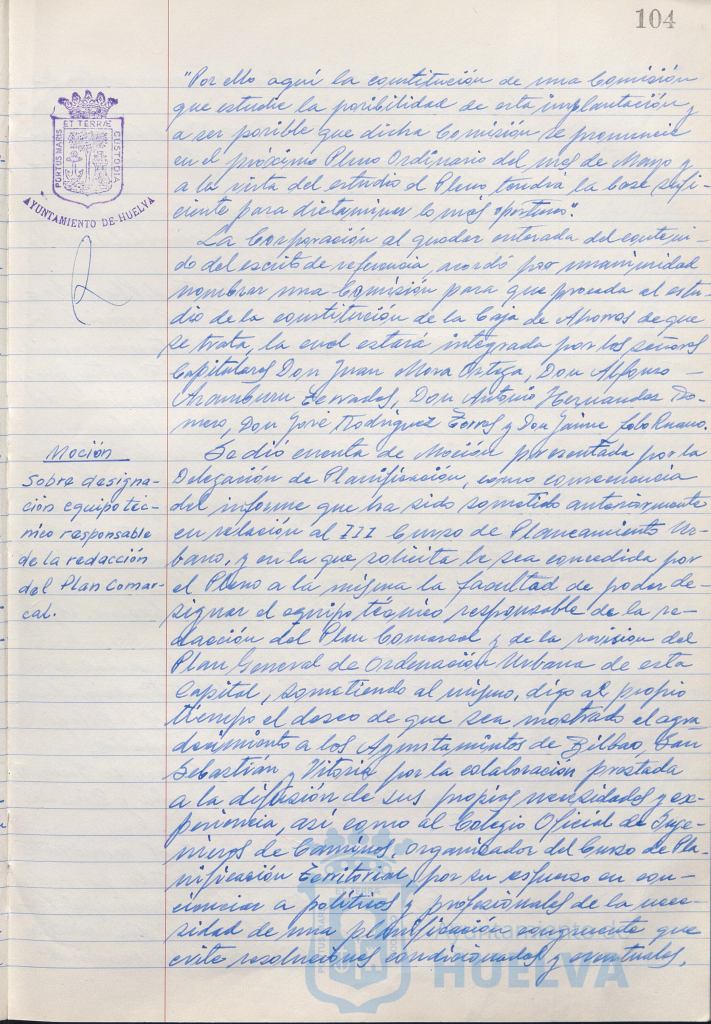 104
PORTUS MARIS ET TERRÆ CUSTODIA
AYUNTAMIENTO DE HUELVA
"Por ello aquí la constitución de una Comisión
que estudie la posibilidad de esta implantación y
a ser posible que dicha Comisión se pronuncie
en el próximo Pleno Ordinario del mes de Marzo y
a la vista del estudio el Pleno tendrá la base sufi-
ciente para dictaminar lo más oportuno".
La Corporación al quedar enterada del conteni-
do del escrito de referencia, acordó por unanimidad
nombrar una Comisión para que proceda al estu-
dio de la constitución de la Caja de Ahorros de que
se trata, la cual estará integrada por los señores
Capitulares Don Juan Mora Ortiga, Don Alfonso
Aramburu Terrades, Don Antonio Hernandez Ro-
mero, Don José Rodríguez Torres y Don Jaime Lobo Ruano.
Moción
Sobre designa-
ción equipo téc-
nico responsable
de la redacción
del Plan Comar-
cal.
Se dió cuenta de Moción presentada por la
Delegación de Planificación, como consecuencia
del informe que ha sido sometido anteriormente
en relación al III Curso de Planeamiento Ur-
bano, y en la que solicita le sea concedida por
el Pleno a la misma la facultad de poder de-
signar el equipo técnico responsable de la re-
dacción del Plan Comarcal y de la revisión del
Plan General de Ordenación Urbana de esta
Capital, sometiendo al mismo, digo al propio
tiempo el deseo de que sea mostrado el agra-
decimiento a los Ayuntamientos de Bilbao, San
Sebastián y Vitoria por la colaboración prestada
a la difusión de sus propias necesidades y ex-
periencia, así como al Colegio Oficial de Inge-
nieros de Caminos, organizador del Curso de Pla-
nificación Territorial, por su esfuerzo en con-
cienciar a políticos y profesionales de la nece-
sidad de una planificación congruente que
evite resoluciones condicionadas y eventuales.
HUELVA